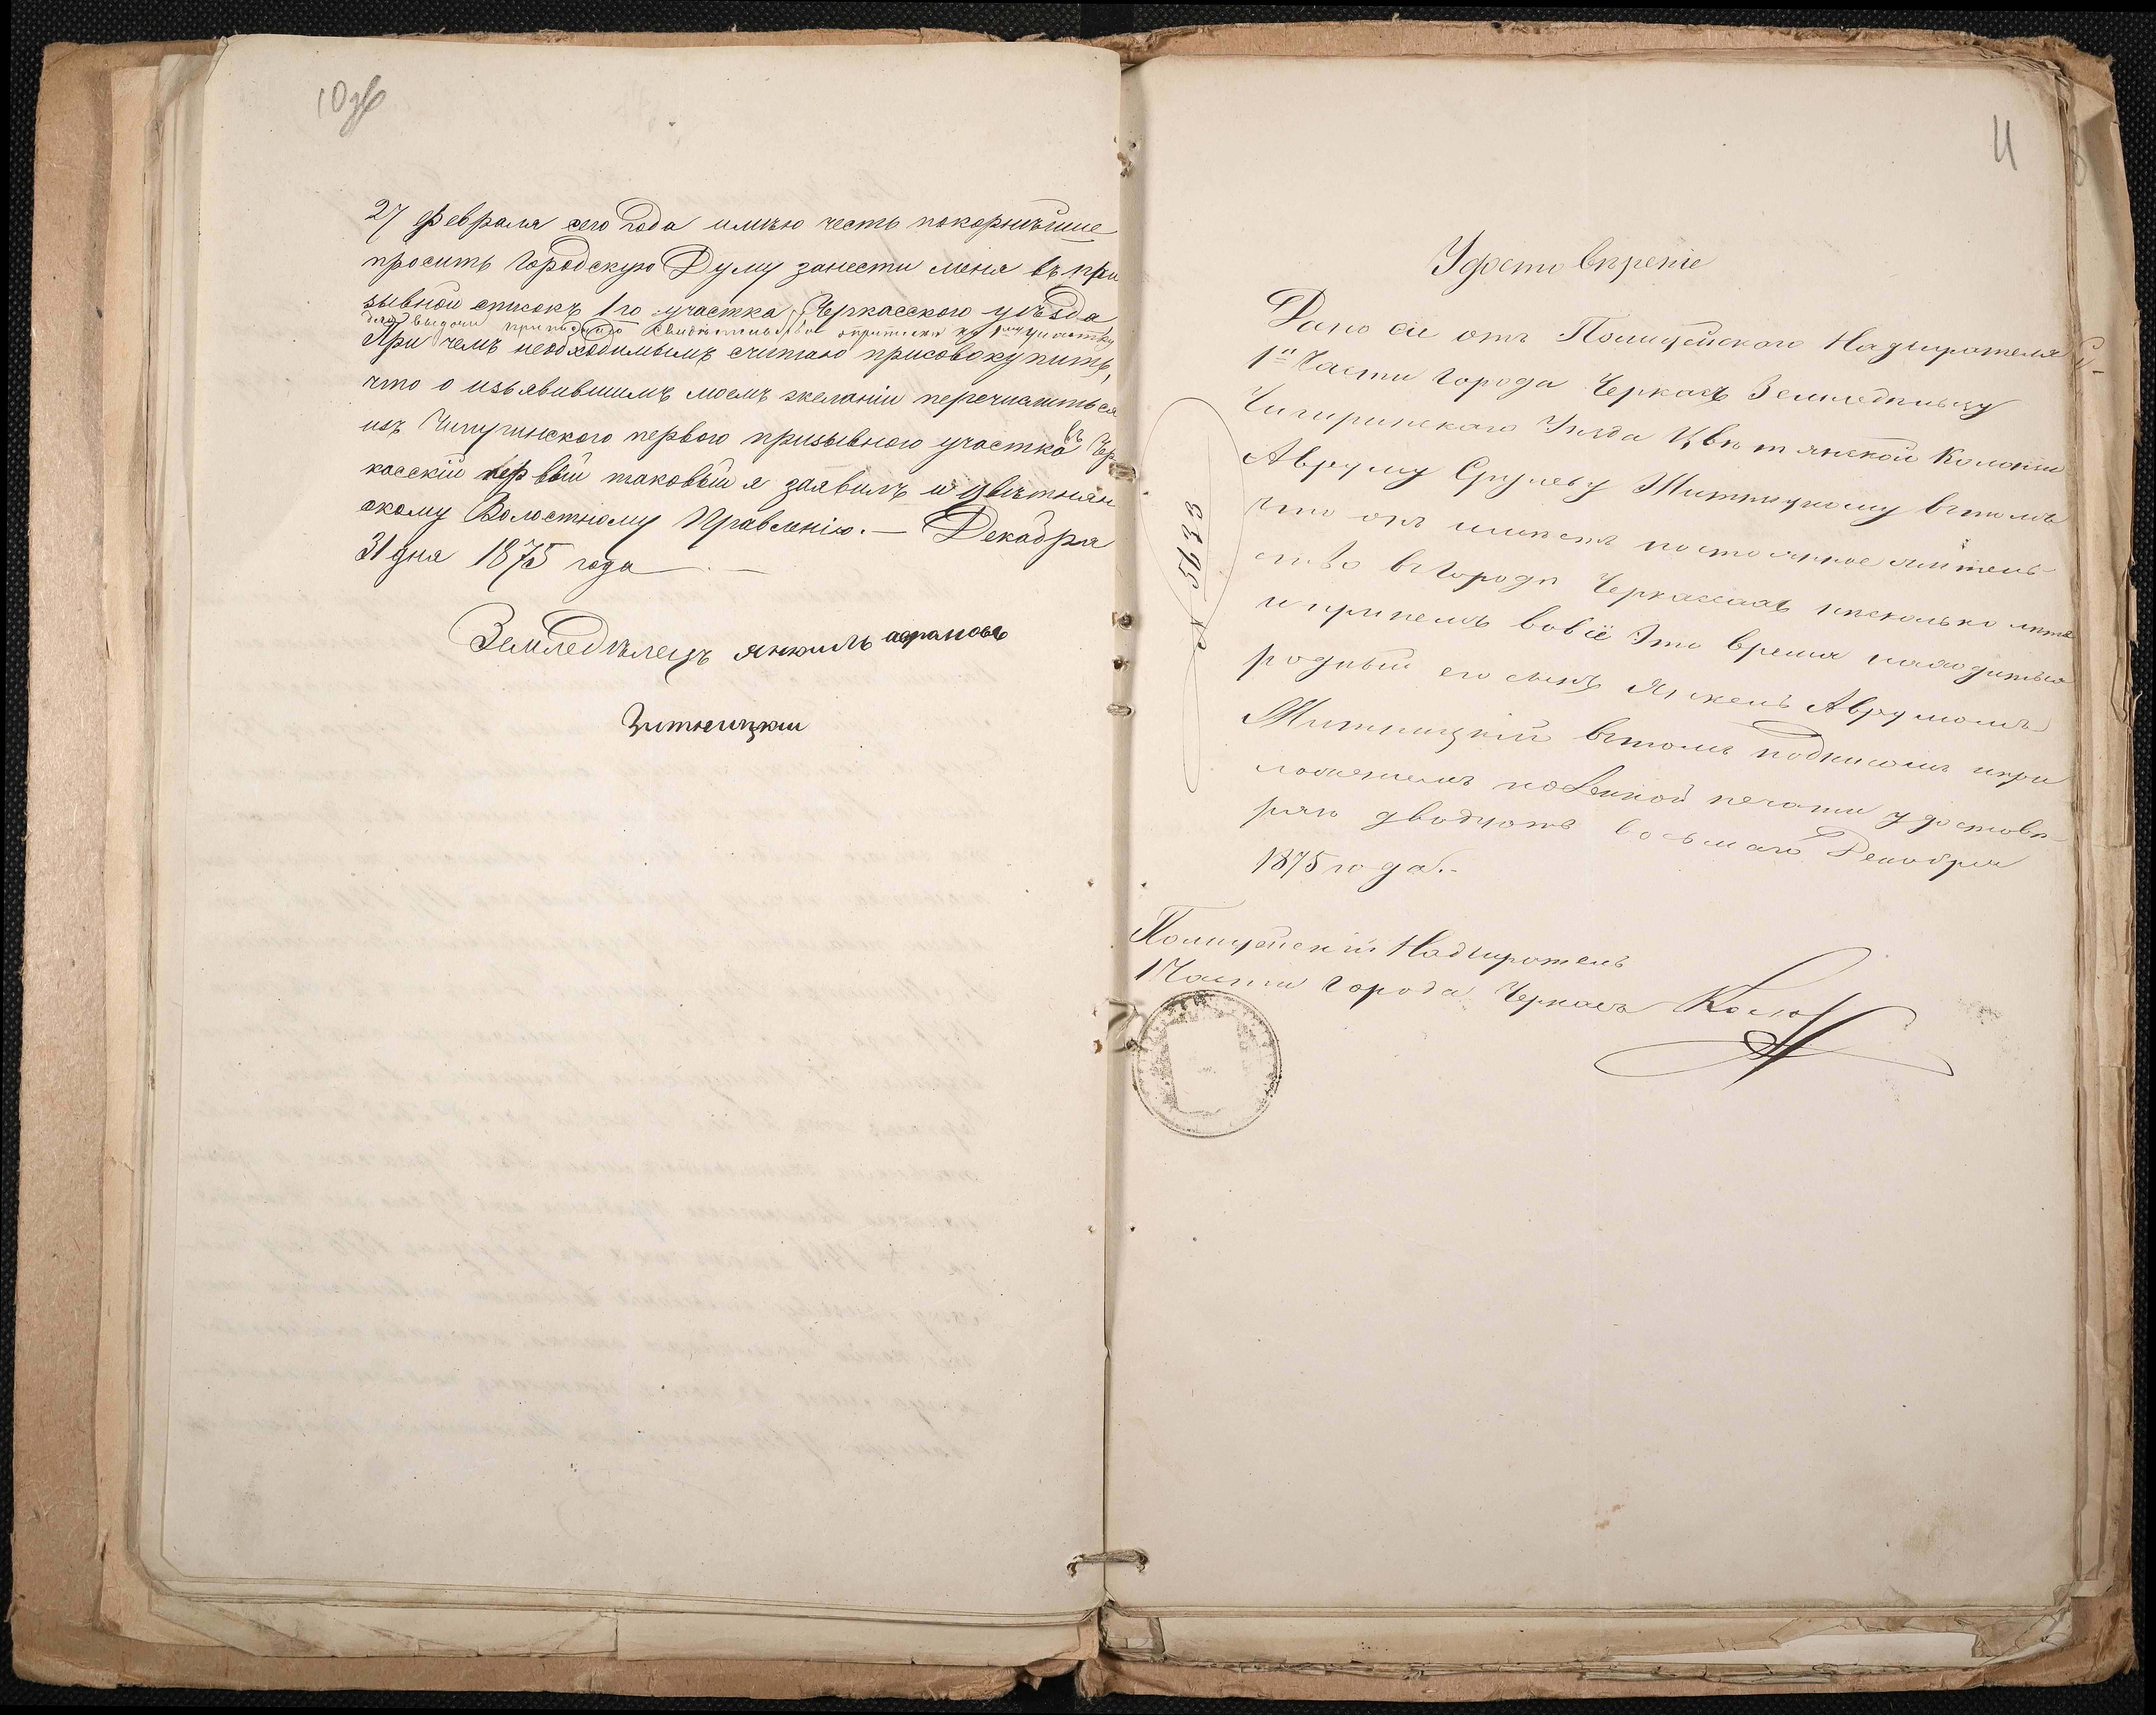 10 об
27 февраля сего года имѣю честь покорнѣйше
просить Городскую Думу занести меня въ при
зывной списокъ 1го участка Черкасского уѣзда
для выдачи приписного свидѣтельства о припискѣ къ 1му участку
При чемъ необходимымъ считаю присовокупить,
что о изъявившимъ моемъ желаніи перечислиться
изъ Чигиринского первого призывного участка въ Чер
касскій первый таковый я заявилъ и Цвѣтнян
скому Волостному Правленію. — Декабря
31 дня 1875 года
Земледѣлецъ Янкиль Аврамовъ
Зитницкій
11
Удостовѣреніе
Дано сіе отъ Полицейскаго Надзирателя
1й Части Города Черкасъ Земледѣльцу
Чигиринскаго Уѣзда Цвѣтянской Колоніи
Авруму Срулеву Житницкому въ томъ
что онъ имѣетъ постоянное житель
ство въ Городѣ Черкассахъ нѣсколько лѣтъ
и при немъ во всё Это время находится
родный его сынъ Янкель Аврумовъ
Житницкій въ томъ подписомъ и при
ложеніемъ казенной печати удостовѣ
ряю двадцать восьмаго Декабря
1875 года.
Полицейскій Надзиратель
1 Части Города Черкасъ